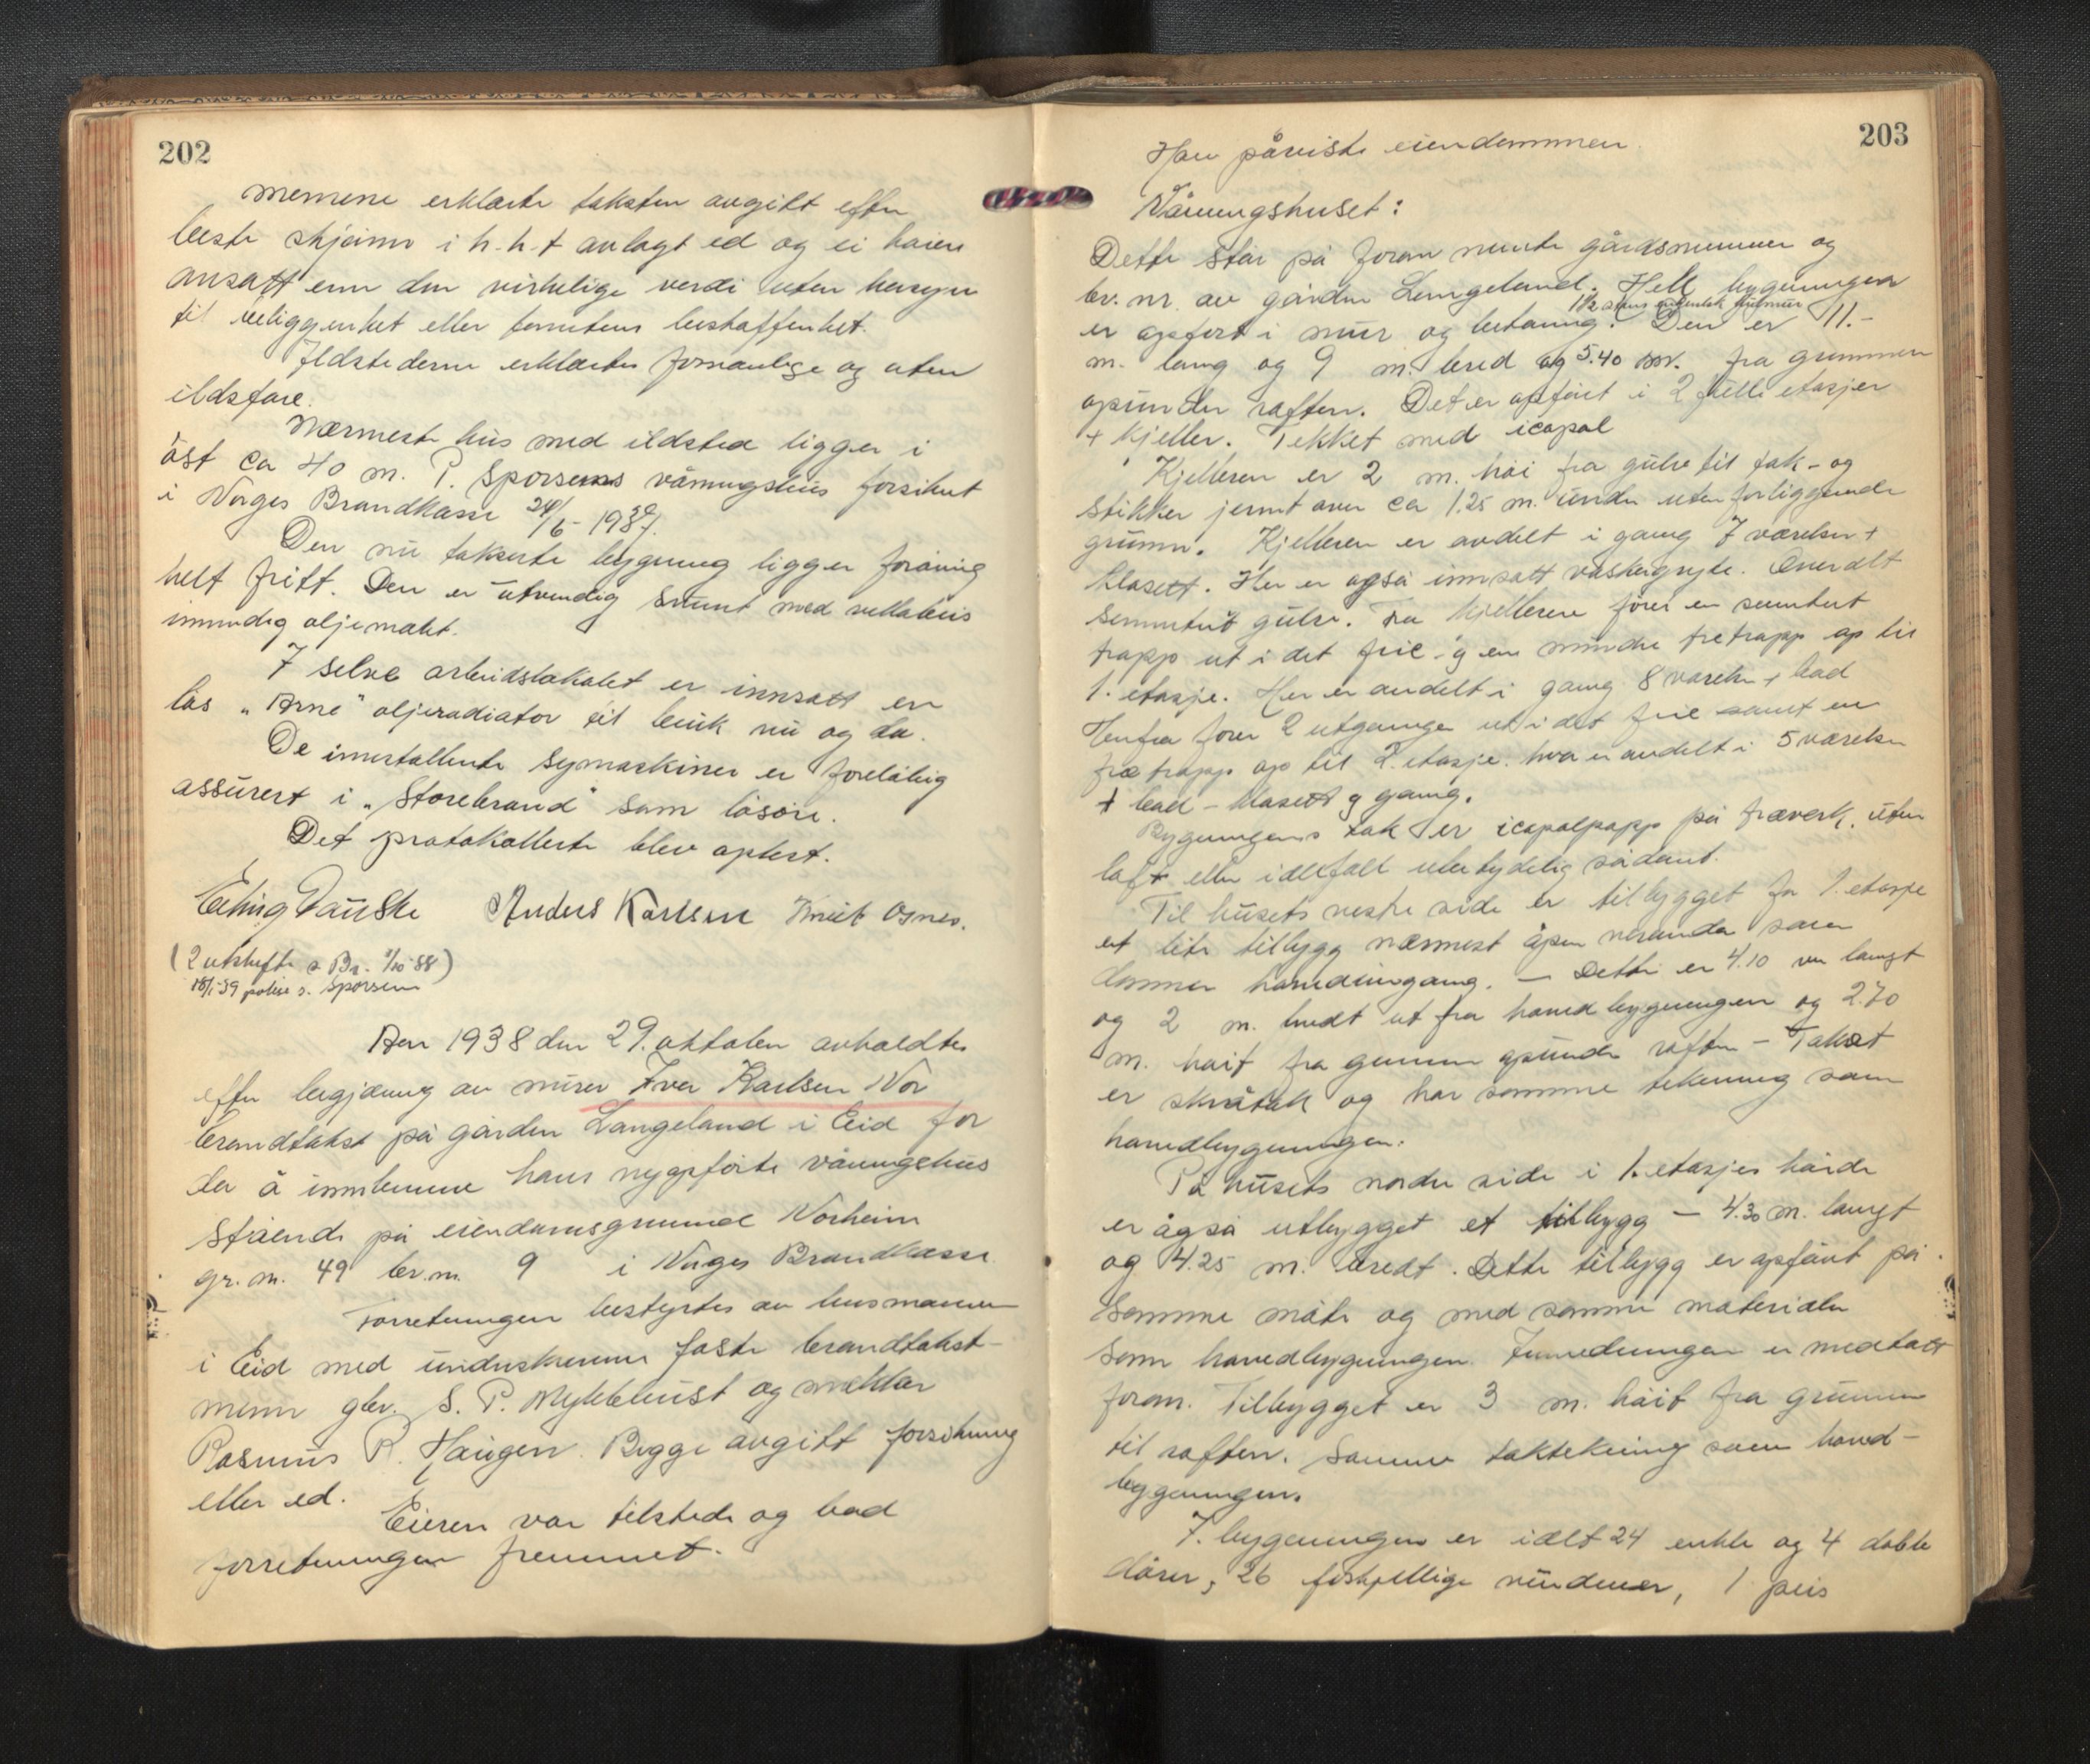 202
mennene erklærte taksten avgitt efter
beste skjønn i h.h.t avlagt ed og ei høiere
ansatt enn den virkelige verdi uten hensyn
til beliggenhet eller tomtens beskaffenhet.
Ildstederne erklærtes forsvarlige og uten
ildsfare.
Nærmeste hus med ildsted ligger i
öst ca 40 m. P. Sporsems våningshus forsikret
i Norges Brandkasse 24/6- 1937.
Den nu takserte bygning ligger forøvrig
helt fritt. Den er utvendig
innvendig oljemalet.
I selve arbeidslokalet er innsatt en
løs "Arne" oljeradiator til bruk nu og da.
De innstallerte symaskiner er foreløbig
assurert i "Storebrand" som løsøre.
Det protokollerte blev oplest.
Erling Dauske Anders Karlsen Knut Osnes.
(2 utskrifter s Br. 1/10-38)
18/1-39 polise s. Sporsem
Aar 1938 den 29. oktober avholdtes
efter begjæring av murer Iver Karlsen Nor
brandtakst på gården Langeland i Eid for
der å innlemme hans nyopførte våningshus
stående på eiendomsgrunnd Norheim
gr. nr. 49 br. nr. 9 i Norges Brandkasse.
Forretningen bestyrtes av lensmannen
i Eid med underskrevne faste brandtakst-
menn gbr. S. P. Myklebust og snekker
Rasmus R. Haugen. Begge avgitt forsikring
eller ed.
Eieren var tilstede og bad
forretningen fremmet.
203
Han påviste eiendommen.
Våningshuset:
Dette står på foran nevnte gårdsnummer og
br. nr. av gården Langeland. Hele bygningen
1 1/2 stens hulmur
er opført i mur og betong. Den er 11.-
m. lang og 9 m. bred og 5.40 m. fra grunnen
opunder raften. Det er opført i 2 fulle etasjer
+ kjeller. Tekket med icopal
Kjelleren er 2 m. høi fra gulv til tak - og
stikker jevnt over ca 1.25 m. under utenforliggende
grunn. Kjelleren er avdelt i gang 7 værelser +
klosett. Her er også innsatt vaskegryte. Overalt
sementert gulv. Fra kjelleren fører en sementert
trapp ut i det frie og en mindre tretrapp op til
1. etasje. Her er avdelt i gang 8 værelser + bad
Herfra fører 2 utganger ut i det frie samt en
tre trapp op til 2. etasje. hvor er avdelt i 5 værelser
+ bad - klosett og gang.
Bygningens tak er icopalpapp på træverk, uten
loft eller iallfall ubetydelig sådant.
Til husets vestre side er tilbygget for 1. etasje
et lite tilbygg nærmest åpen veranda som
danner hovedinngang. - Dette er 4.10 m langt
og 2 m. bredt ut fra hovedbygningen og 2.70
m. høit fra grunnen opunder raften - Taket
er skråtak og har samme tekning som
hovedbygningen.
På husets nordre side i 1. etasjes høide
er også utbygget et tilbygg - 4.30 m. langt
og 4.25 m. bredt. Dette tilbygg er opført på
samme måte og med samme materialer
som hovedbygningen. Innredningen er medtatt
foran. Tilbygget er 3 m. høit fra grunnen
til raften. Samme taktekning som hoved-
bygningen.
I bygningen er ialt 24 enkle og 4 doble
dører, 26 forskjellige vinduer, 1 peis